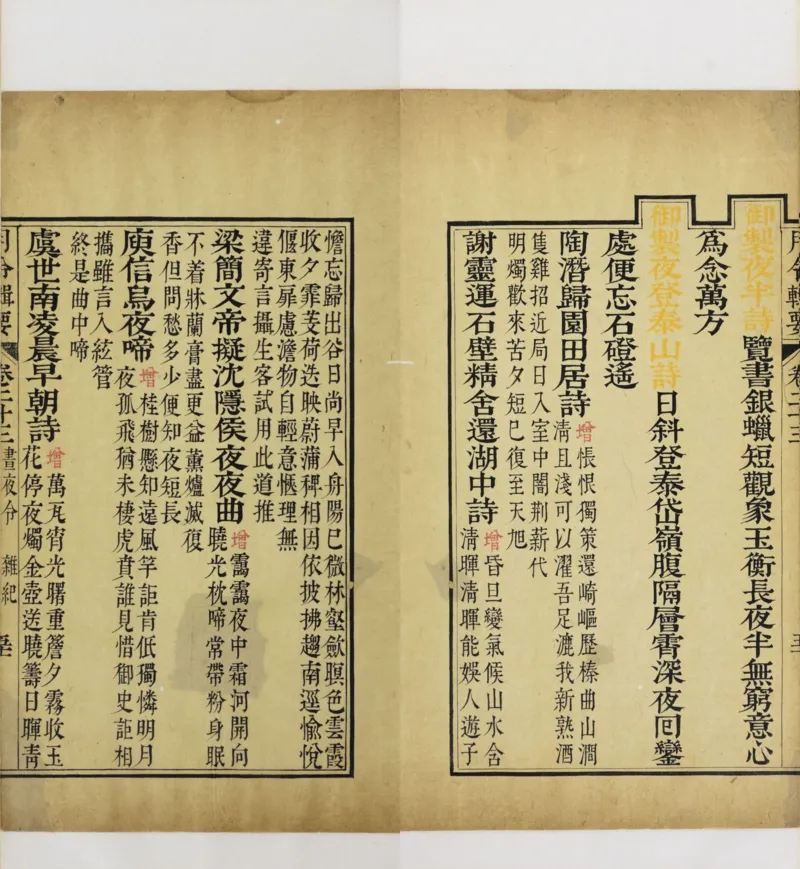 月令輯要 卷二十三
御製夜半詩 覽書銀蠟短觀象玉衡長夜半無窮意心
為念萬方
御製夜登泰山詩 日斜登泰岱嶺腹隔層霄深夜回鑾
處便忘石磴遙
陶潛歸園田居詩 增悵恨獨策還崎嶇歷榛曲山澗
清且淺可以濯吾足漉我新熟酒
隻雞招近局日入室中闇荆薪代
明燭歡來苦夕短已復至天旭
謝靈運石壁精舍還湖中詩 增昏旦變氣候山水含
清暉清暉能娛人遊子
憺忘歸出谷日尚早入舟陽已微林壑歛暝色雲霞
收夕霏芰荷迭映蔚蒲稗相因依披拂趨南逕愉悅
偃東扉慮澹物自輕意愜理無
違寄言攝生客試用此道推
梁簡文帝擬沈隱侯夜夜曲 增靄靄夜中霜河開向
曉光枕啼常帶粉身眠
不着牀蘭膏盡更益薰爐滅復
香但問愁多少便知夜短長
庾信烏夜啼 增桂樹懸知遠風竿詎肯低獨憐明月
夜孤飛猶未棲虎賁誰見惜御史詎相
攜雖言入絃管
終是曲中啼
虞世南凌晨早朝詩 增萬瓦宵光曙重簷夕霧收玉
花停夜燭金壺送曉籌日暉青
月令輯要 卷二十三 晝夜令 雜紀